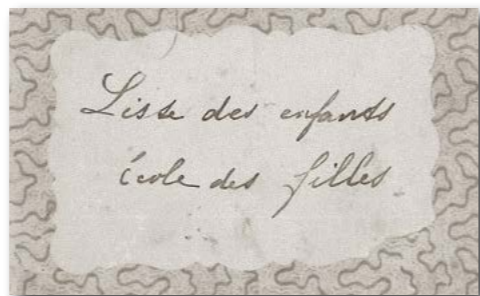 Liste des enfants
école des filles